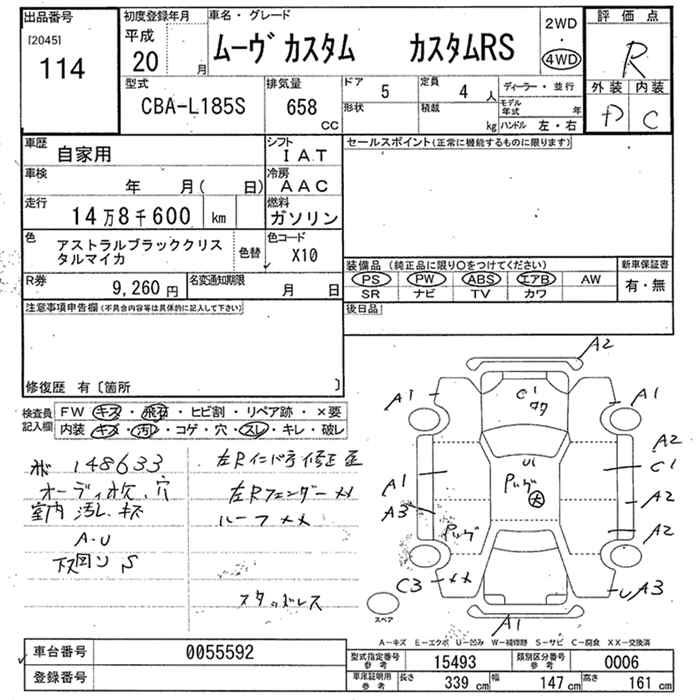 出品番号
[2045]
114
初度登録年月
平成
20
月
車名・グレード
ムーヴ カスタム カスタムRS
2WD
・
4WD
評価点
R
外装
内装
D
C
型式
CBA-L185S
排気量
658
CC
ドア
5
形状
定員
4 人
積載
kg
ディーラー・並行
モデル年式
年
ハンドル 左・右
車歴
自家用
シフト
IAT
車検
年 月( 日)
冷房
AAC
走行
14万8千600 km
燃料
ガソリン
色
アストラルブラッククリスタルマイカ
色替
色コード
X10
R券
9,260 円
名変通知期限
月 日
セールスポイント(正常に機能するものに限ります)
装備品 (純正品に限り○をつけてください)
PS PW ABS エアB AW
SR ナビ TV カワ
新車保証書
有・無
後日品
注意事項申告欄(不具合内容等は具体的に記入して下さい)
修復歴 有〔箇所 〕
検査員
記入欄
FW キズ・飛石・ヒビ割・リペア跡・×要
内装 キズ・汚れ・コゲ・穴・スレ・キレ・破レ
148633
オーディオ欠、穴
室内 汚れ、キズ
A・U
下回り S
左Rインパネ修正歪
左Rフェンダーメメ
ルーフメメ
スタッドレス
A2
A1
A1
C1
A2
C1
A1
A3
U1
A2
A2
C3
A3
A1
スペア
A－キズ E－エクボ U－凹み W－補修跡 S－サビ C－腐食 XX－交換済
車台番号
0055592
登録番号
型式指定番号
参考
15493
類別区分番号
参考
0006
車庫証明用
参考
長さ
339 cm
幅
147 cm
高さ
161 cm